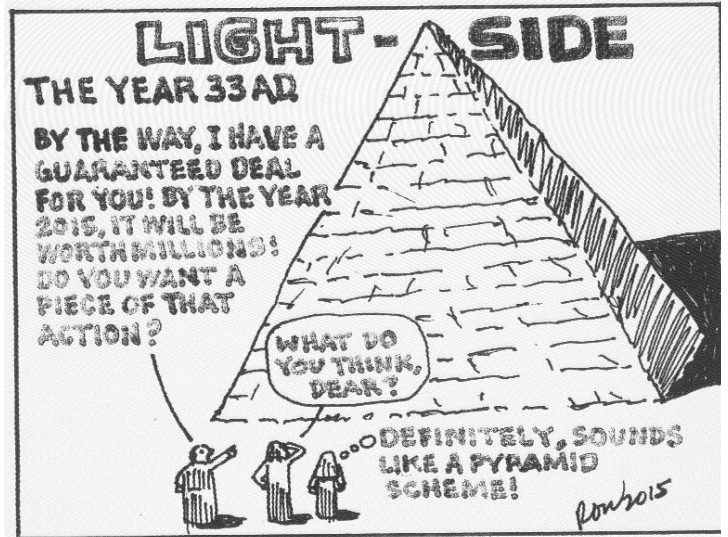 LIGHT - SIDE
THE YEAR 33 AD
BY THE WAY, I HAVE A
GUARANTEED DEAL
FOR YOU! BY THE YEAR
2015, IT WILL BE
WORTH MILLIONS!
DO YOU WANT A
PIECE OF THAT
ACTION?
WHAT DO
YOU THINK,
DEAR?
DEFINITELY, SOUNDS
LIKE A PYRAMID
SCHEME!
2015